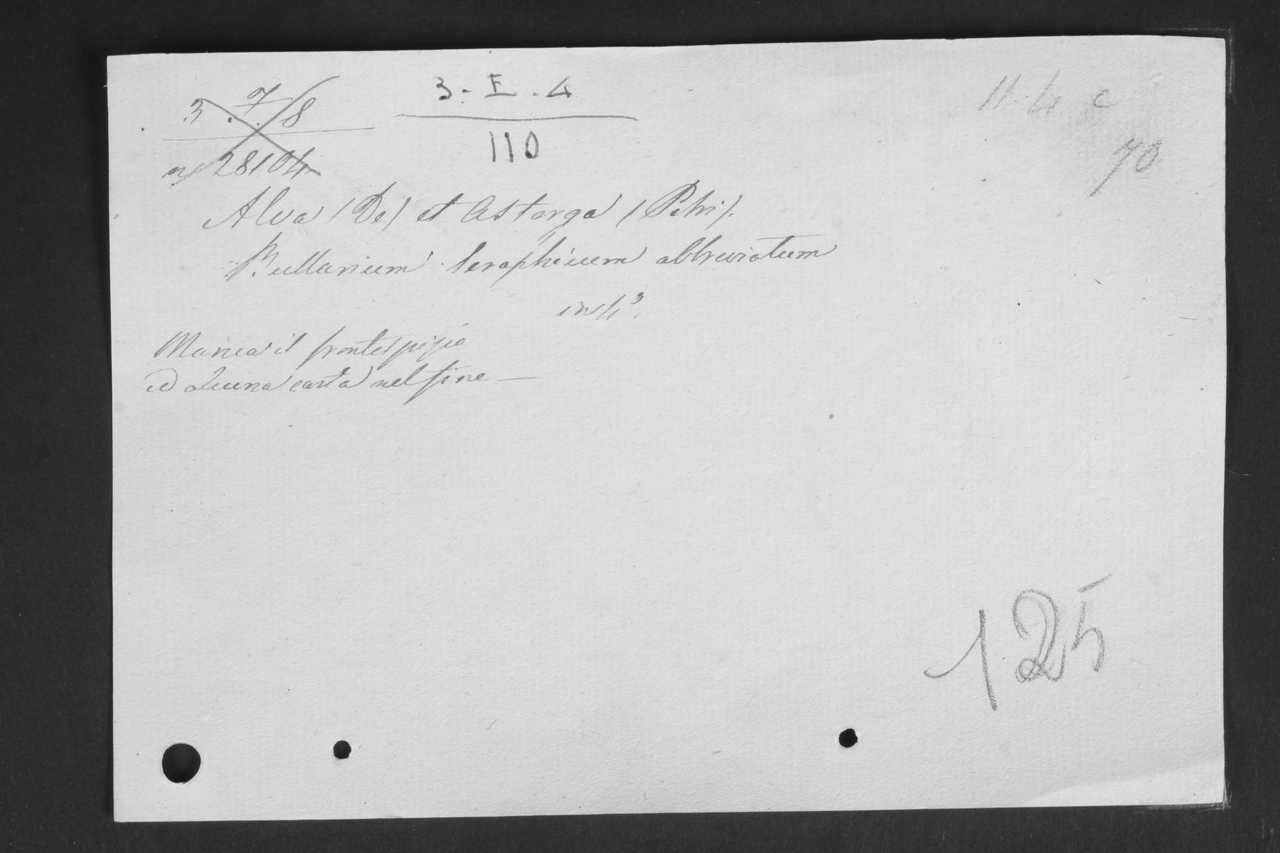 3.7.8
nº 28104
3-E-4
110
11-4 c
70
Alva (De) et Astorga (Petri).
Bullarium Seraphicum abbreviatum
in 4º.
Manca il frontespizio
ed alcuna carta nel fine —
125